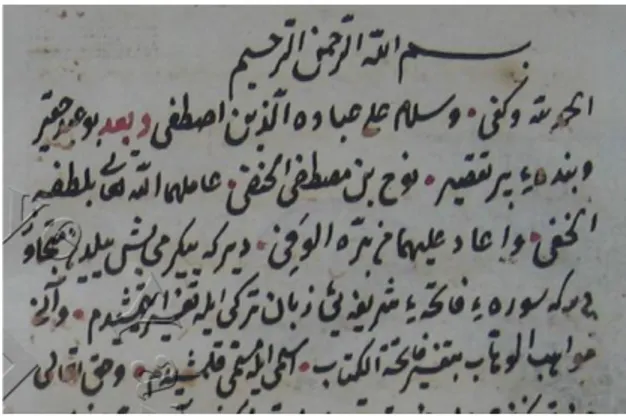 بسم الله الرحمن الرحيم
الحمد لله وكفى وسلام على عباده الذين اصطفى وبعد بو عبد حقير
وبنده ء پر تقصير نوح بن مصطفى الحنفى عاملهما الله تعالى بلطفه
الخفى واعاد عليهما من بره الوفى ديركه بيك يكرمى بش ييلنده
كه سوره ء فاتحه ء شريفه يى زبان تركى ايله تفسير ايتمشيدم وآنى
مواهب الوهاب بتفسير فاتحة الكتاب اسمى ايله مسمى قلمشيدم وحق تعالى